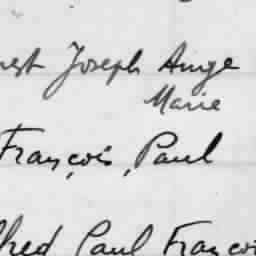 nest Joseph Ange
Marie
François, Paul
lfred Paul Franço